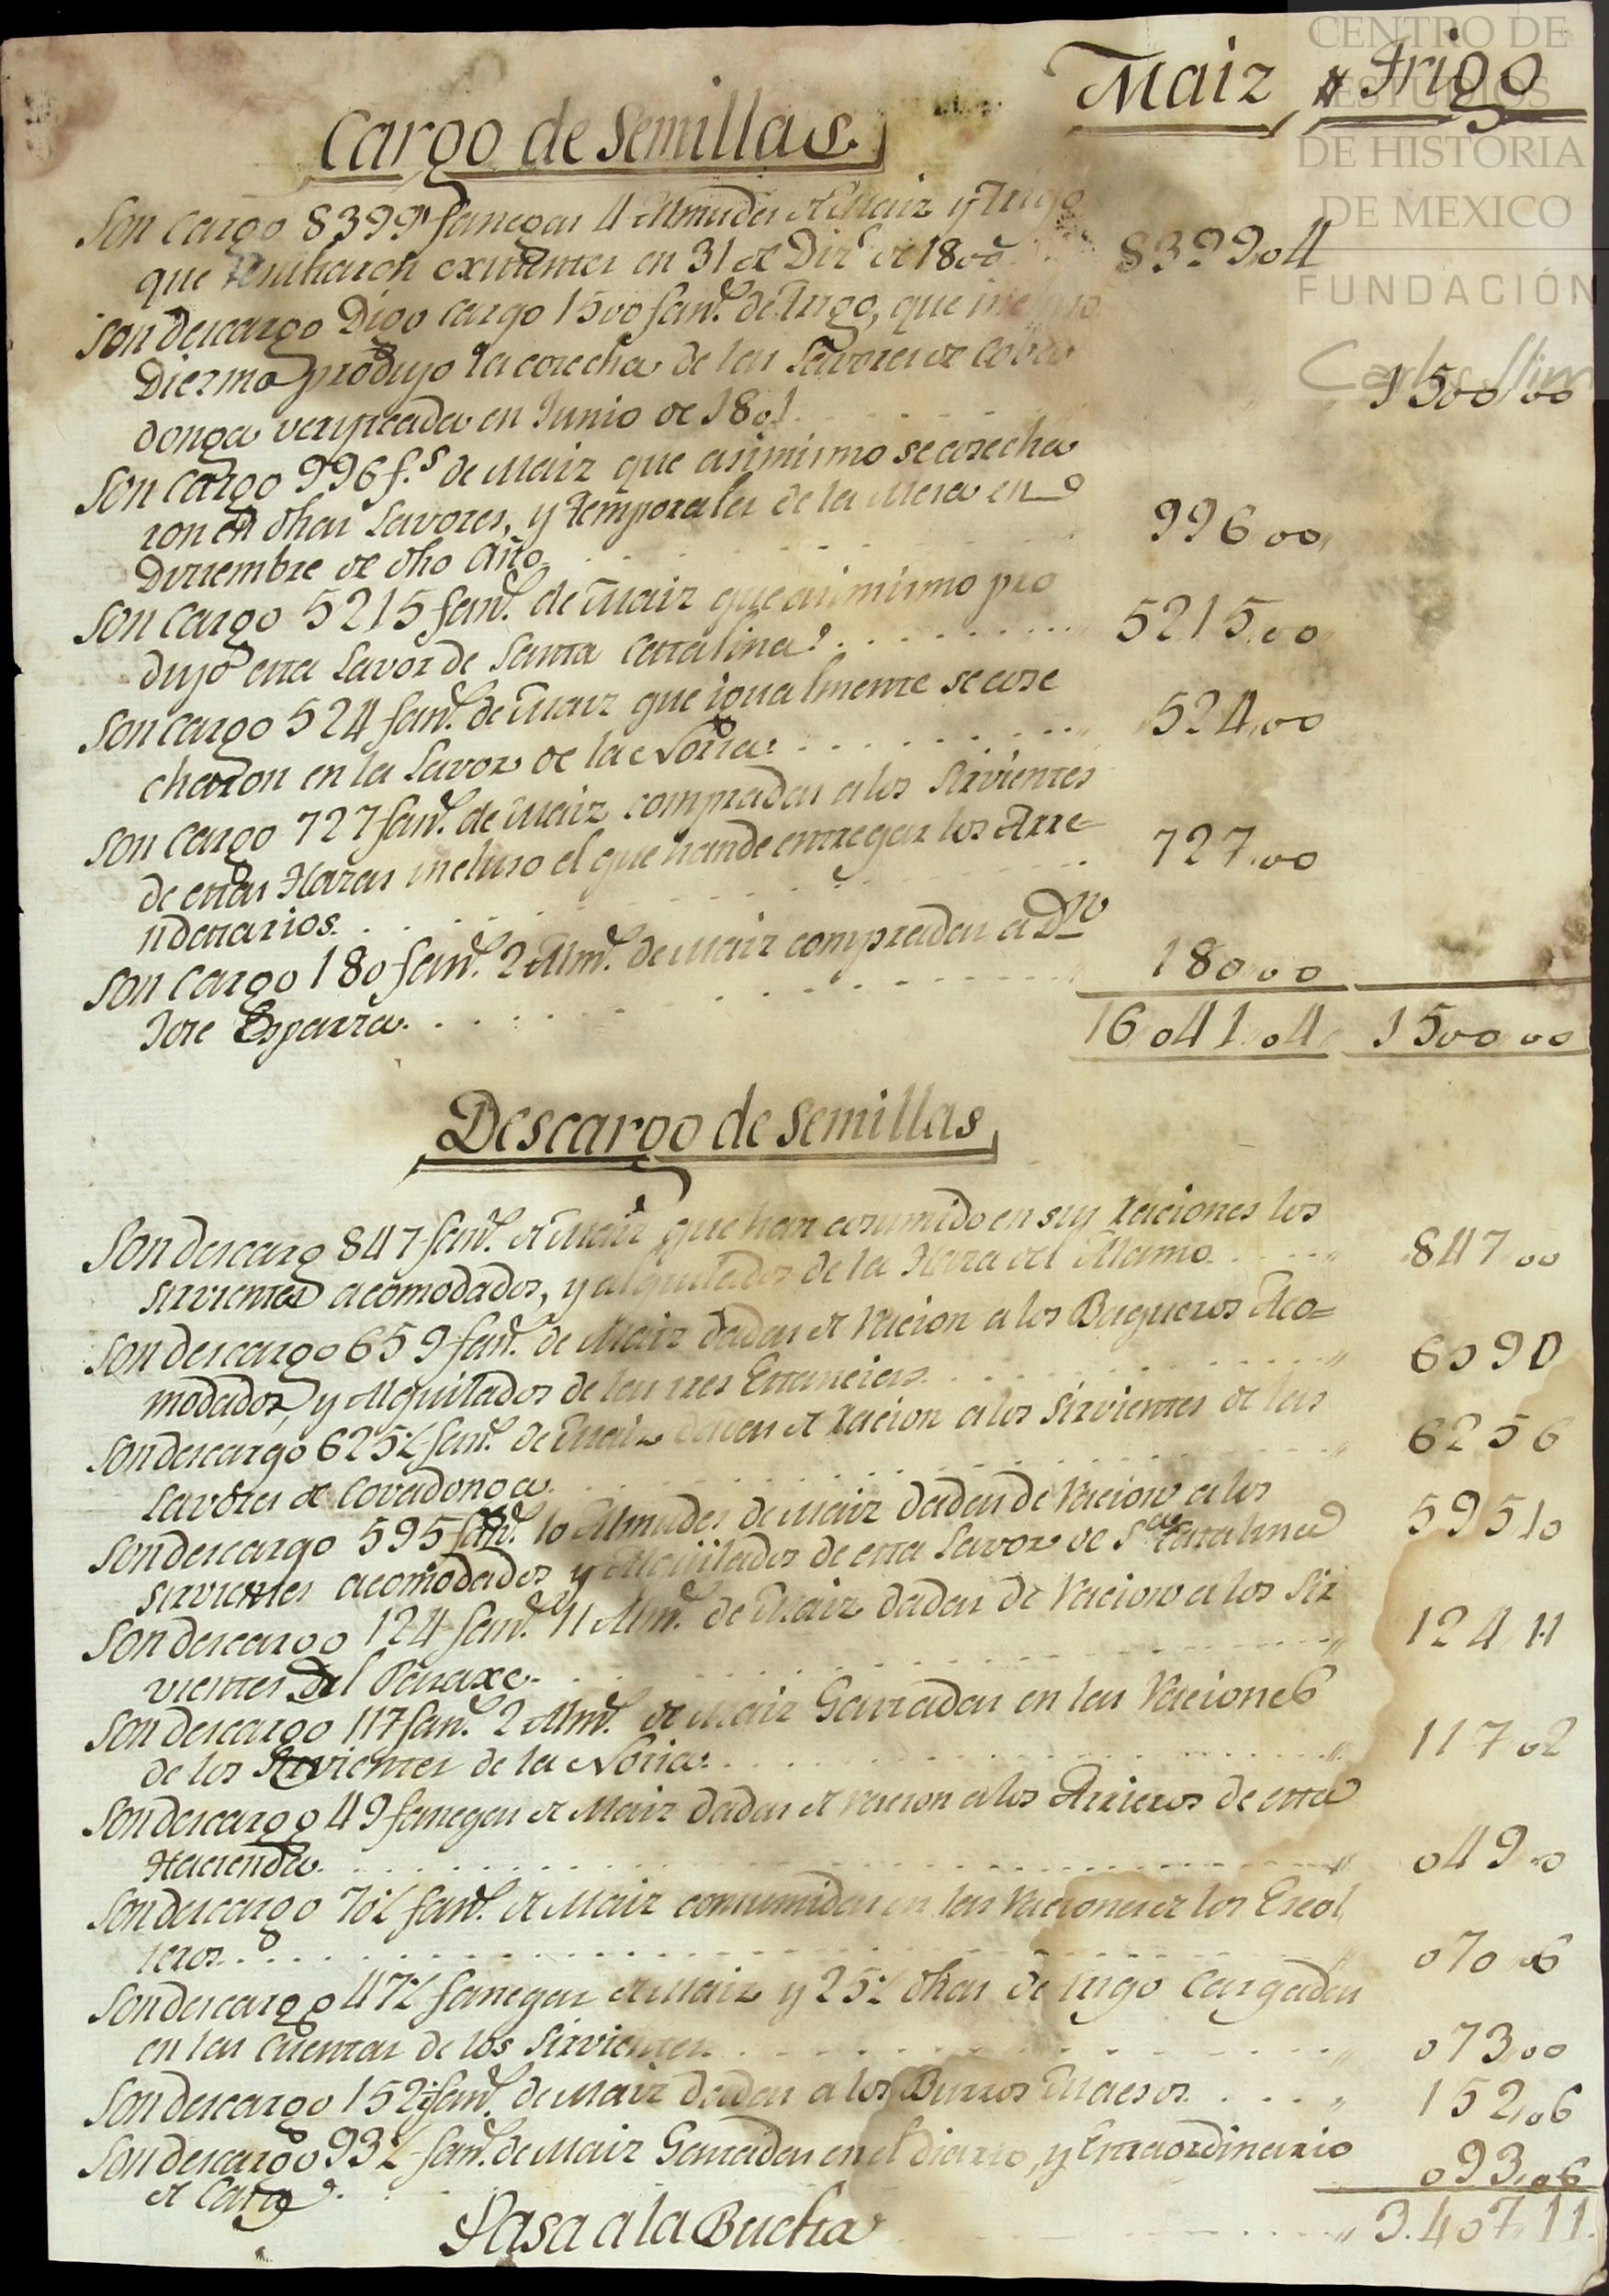 CENTRO DE
ESTUDIOS
DE HISTORIA
DE MEXICO
FUNDACIÓN
Carlos Slim
Maiz Trigo
Cargo de Semillas.
Son cargo 8399 fanegas 4 Almudes de Maiz y Trigo
que resultaron existentes en 31 de Dizre de 1800 8399,,04
Son descargo Digo cargo 1500 fans. de Trigo, que incluso
Diezmo produjo la cosecha de las Lavores de Cova
donga verificada en Junio de 1801 1500,,00
Son Cargo 996 f.s de Maiz que asimismo se cosecha
ron en dhas Lavores, y temporales de la Mesa en
Diziembre de dho Año 996,,00
Son Cargo 5215 fans. de Maiz que asimismo pro
dujo esta Lavor de Santa Catalina 5215,,00
Son cargo 524 fans. de Maiz que igualmente se cose
charon en la Lavor de la Noria 524,,00
Son Cargo 727 fans. de Maiz compradas a los Sirvientes
de estas Hazas incluso el que han de entregar los Arre=
ndatarios. 727,,00
Son Cargo 180 fans. 2 Alms. de Maiz compradas a Dn
Jose Esparza. 180,,00
16,041,,04 1500,,00
Descargo de Semillas
Son descarg 847 fans. de Maiz que han cosumido en sus raciones los
sirvientes acomodados, y alquilados de la Hazda del Alamo 847,,00
Son descargo 659 fans. de Maiz dadas de racion a los Baqueros Aco=
modados, y Alquilados de las tres Estancias. 6590
Son descargo 625½ fans. de Maiz dadas de racion a los Sirvientes de las
Lavores de Covadonga. 625 6
Son descargo 595 fans. 10 Almudes de Maiz dadas de racion a los
sirvientes acomodados y Alquilados de esta Lavor de Sta Catalina 595 10
Son descargo 124 fans. 11 Alms. de Maiz dadas de racion a los Sir
vientes Del Potraxe. 124,11
Son descargo 117 fans. 2 Alms. de Maiz Gastadas en las raciones
de los Sirvientes de la Noria. 117,02
Son descargo 49 fanegas de Maiz dadas de racion a los Arrieros de esta
Hacienda. 049,,0
Son descargo 70½ fans. de Maiz consumidas en las raciones de los Escol
teros. 070 06
Son descargo 47½ fanegas de Maiz y 25½ dhas de Trigo Cargadas
en las Cuentas de los Sirvientes. 073,00
Son descargo 152½ fans. de Maiz dadas a los Burros Maesos. 152,06
Son descargo 93½ fans. de Maiz Gastadas en el diario, y Extraordinario
de Casa. 093,06
Pasa a la Buelta 3.407,11